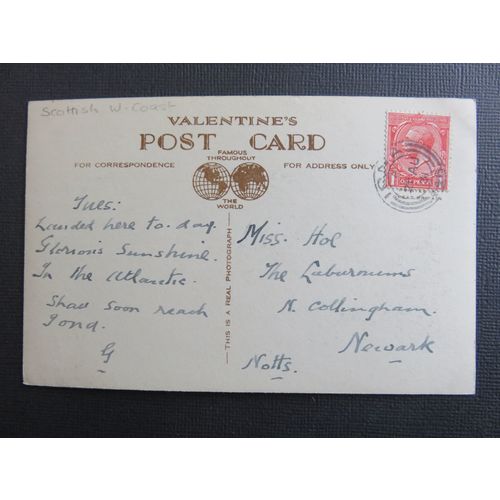 Scottish W. Coast
VALENTINE'S
POST CARD
FAMOUS
THROUGHOUT
THE
WORLD
FOR CORRESPONDENCE
FOR ADDRESS ONLY
THIS IS A REAL PHOTOGRAPH
Tues:
Landed here to-day.
Glorious Sunshine.
In the Atlantic.
Shall soon reach
G
Miss. Hol
The Laburnums
N. Collingham.
Newark
Notts.